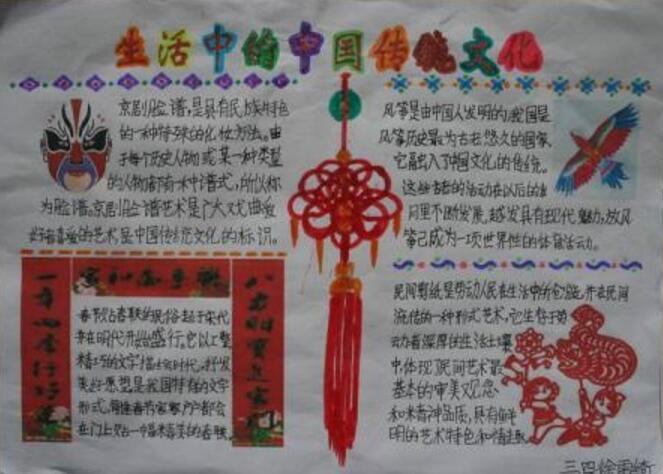 生活中的中国传统文化
京剧脸谱,是具有民族特色
的一种特殊的化妆方法。由
于每个历史人物或某一种类型
的人物都有一种谱式,所以称
为脸谱。京剧脸谱艺术是广大戏曲爱
好者喜爱的艺术是中国传统文化的标识。
风筝是由中国人发明的,我国是
风筝历史最为古老悠久的国家
它融入了中国文化的传统。
这些古老的活动在以后的
间里不断发展,越发具有现代魅力,放风
筝已成为一项世界性的体育活动。
一年四季行好
八方财宝进家门
春节贴春联的民俗起于宋代
并在明代开始盛行,它以工整
精巧的文字描绘时代,抒发
美好愿望是我国特有的文字
形式,每逢春节家家户户都会
在门上贴一幅精美的春联。
民间剪纸是劳动人民在生活中的创造,并在民间
流传的一种形式艺术,它生存于劳
动者深厚的生活土壤
中,体现了民间艺术最
基本的审美观念
和精神品质,具有鲜
明的艺术特色和情趣。
三四